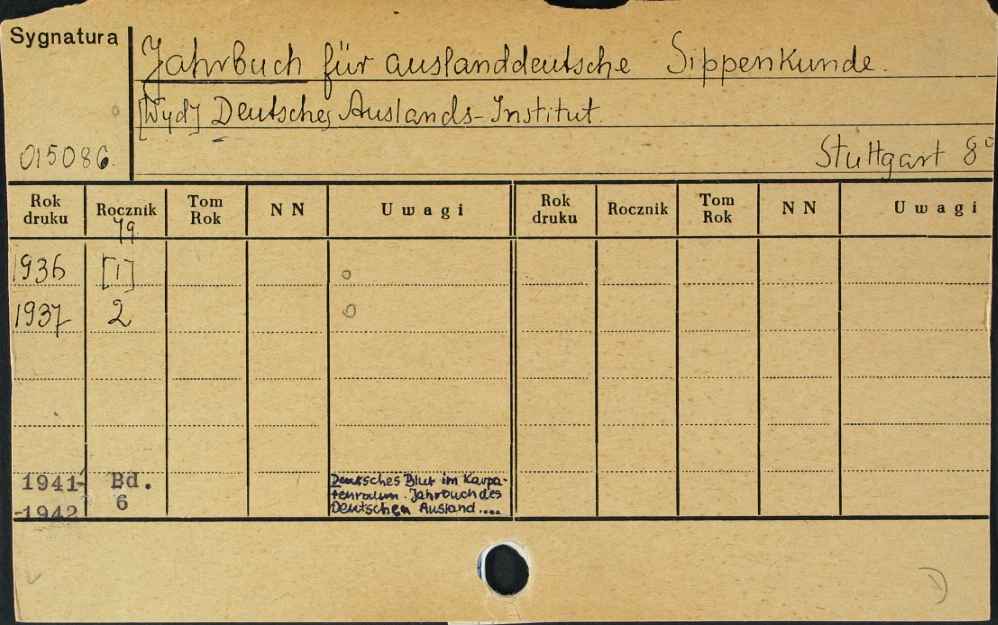 Sygnatura
Jahrbuch für auslanddeutsche Sippenkunde.
[Wyd] Deutsches Auslands-Institut.
015086.
Stuttgart 8°
Rok druku Rocznik Tom Rok N N Uwagi Rok druku Rocznik Tom Rok N N Uwagi
Jg.
1936 [1]
1937 2
1941- Bd. Deutsches Blut im Karpa-
6 tenraum. Jahrbuch des
-1942 Deutschen Ausland....